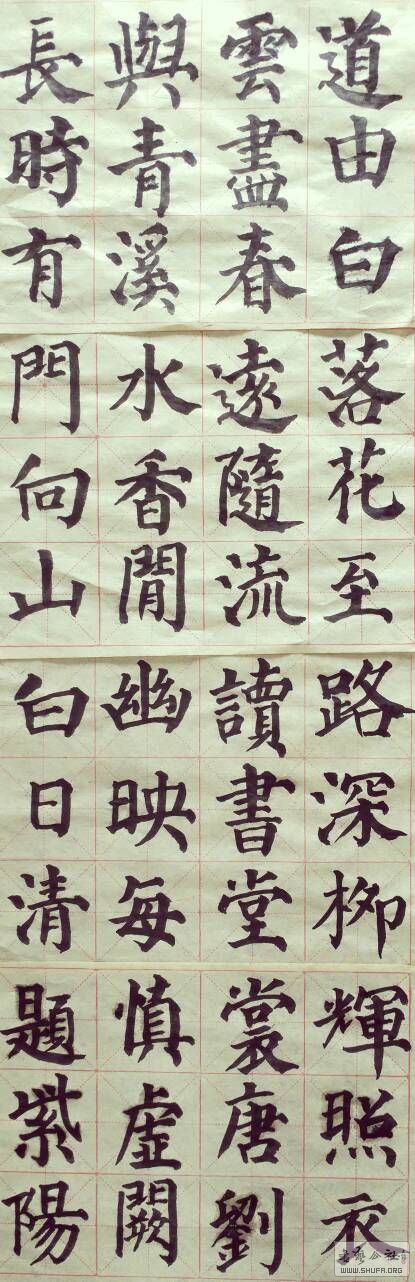 道由白
雲盡春
與青溪
長時有
落花至
遠隨流
水香閒
門向山
路深柳
讀書堂
幽映每
白日清
輝照衣
裳唐劉
慎虛闕
題紫陽
WWW.SHUFA.ORG